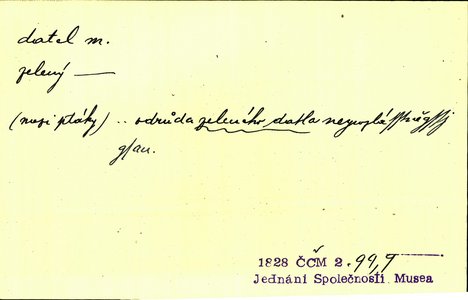 datel m.
zelený —
(mezi ptáky) .. odrůda zeleného datla neyzwláſſtněgſſj
gſau.
1828 ČČM 2. 99, 9
Jednání Společnosti Musea